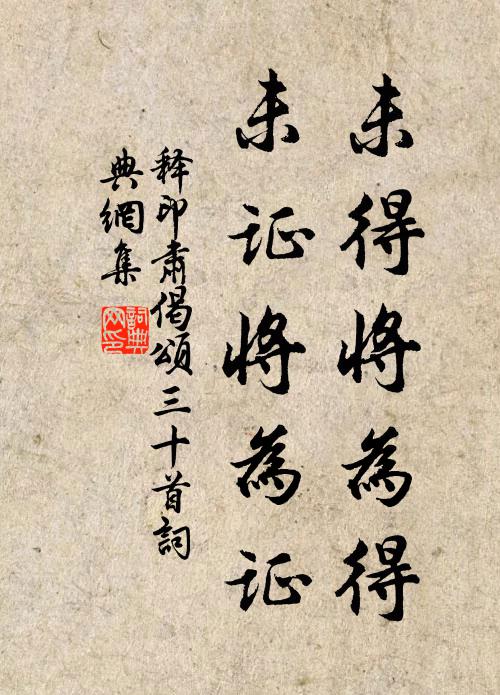 未得將為得
未证將為证
释印肃偈頌三十首詞
典網集
詞典網印